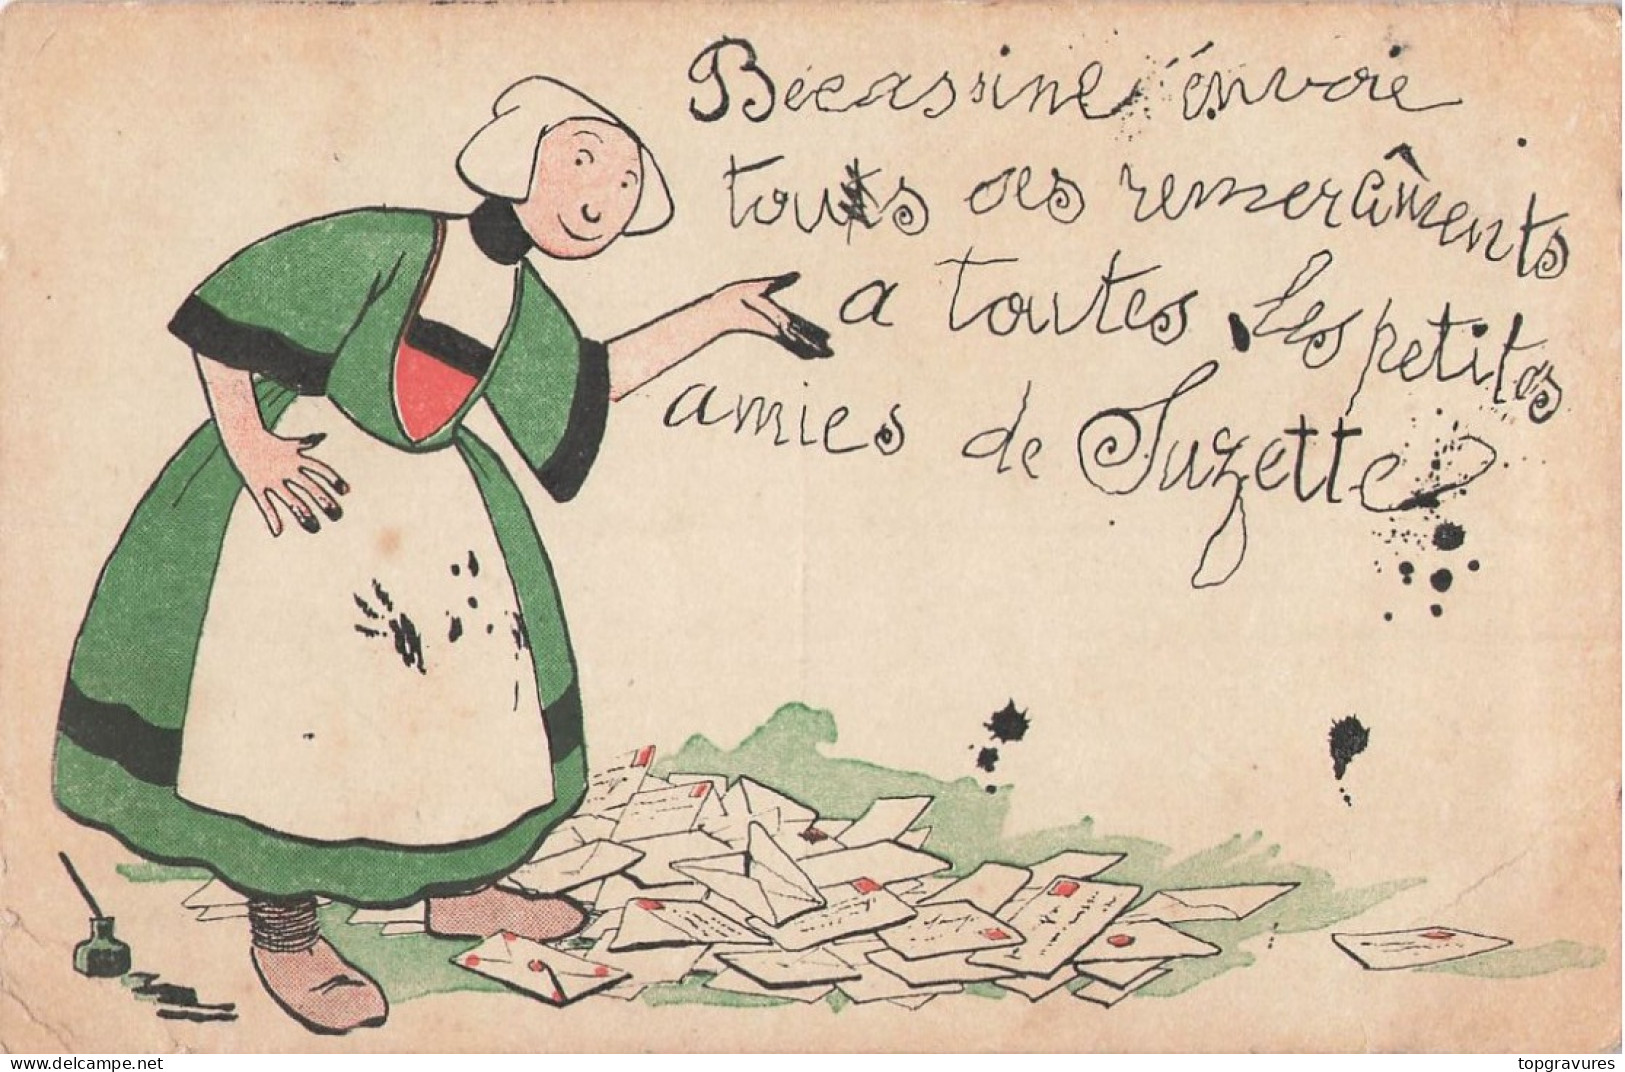 Bécassine envoie
touts ses remercîments
a toutes les petites
amies de Suzette
https://www.delcampe.net
topgravures